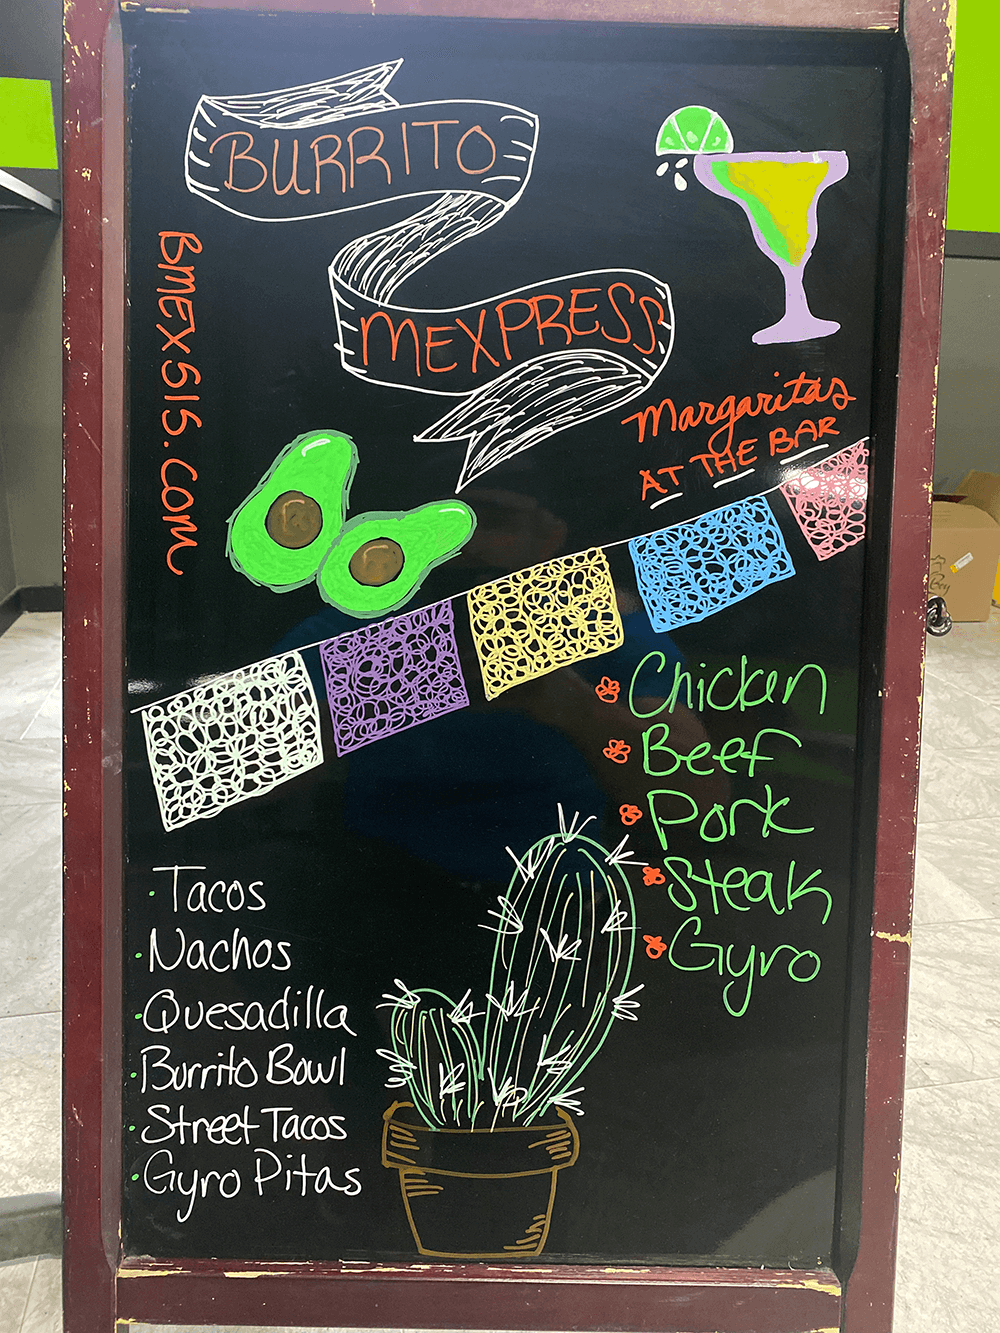 BURRITO
MEXPRESS
BMEXSIS.COM
Margaritas
AT THE BAR
Chicken
Beef
Pork
Steak
Gyro
Tacos
Nachos
Quesadilla
Burrito Bowl
Street Tacos
Gyro Pitas